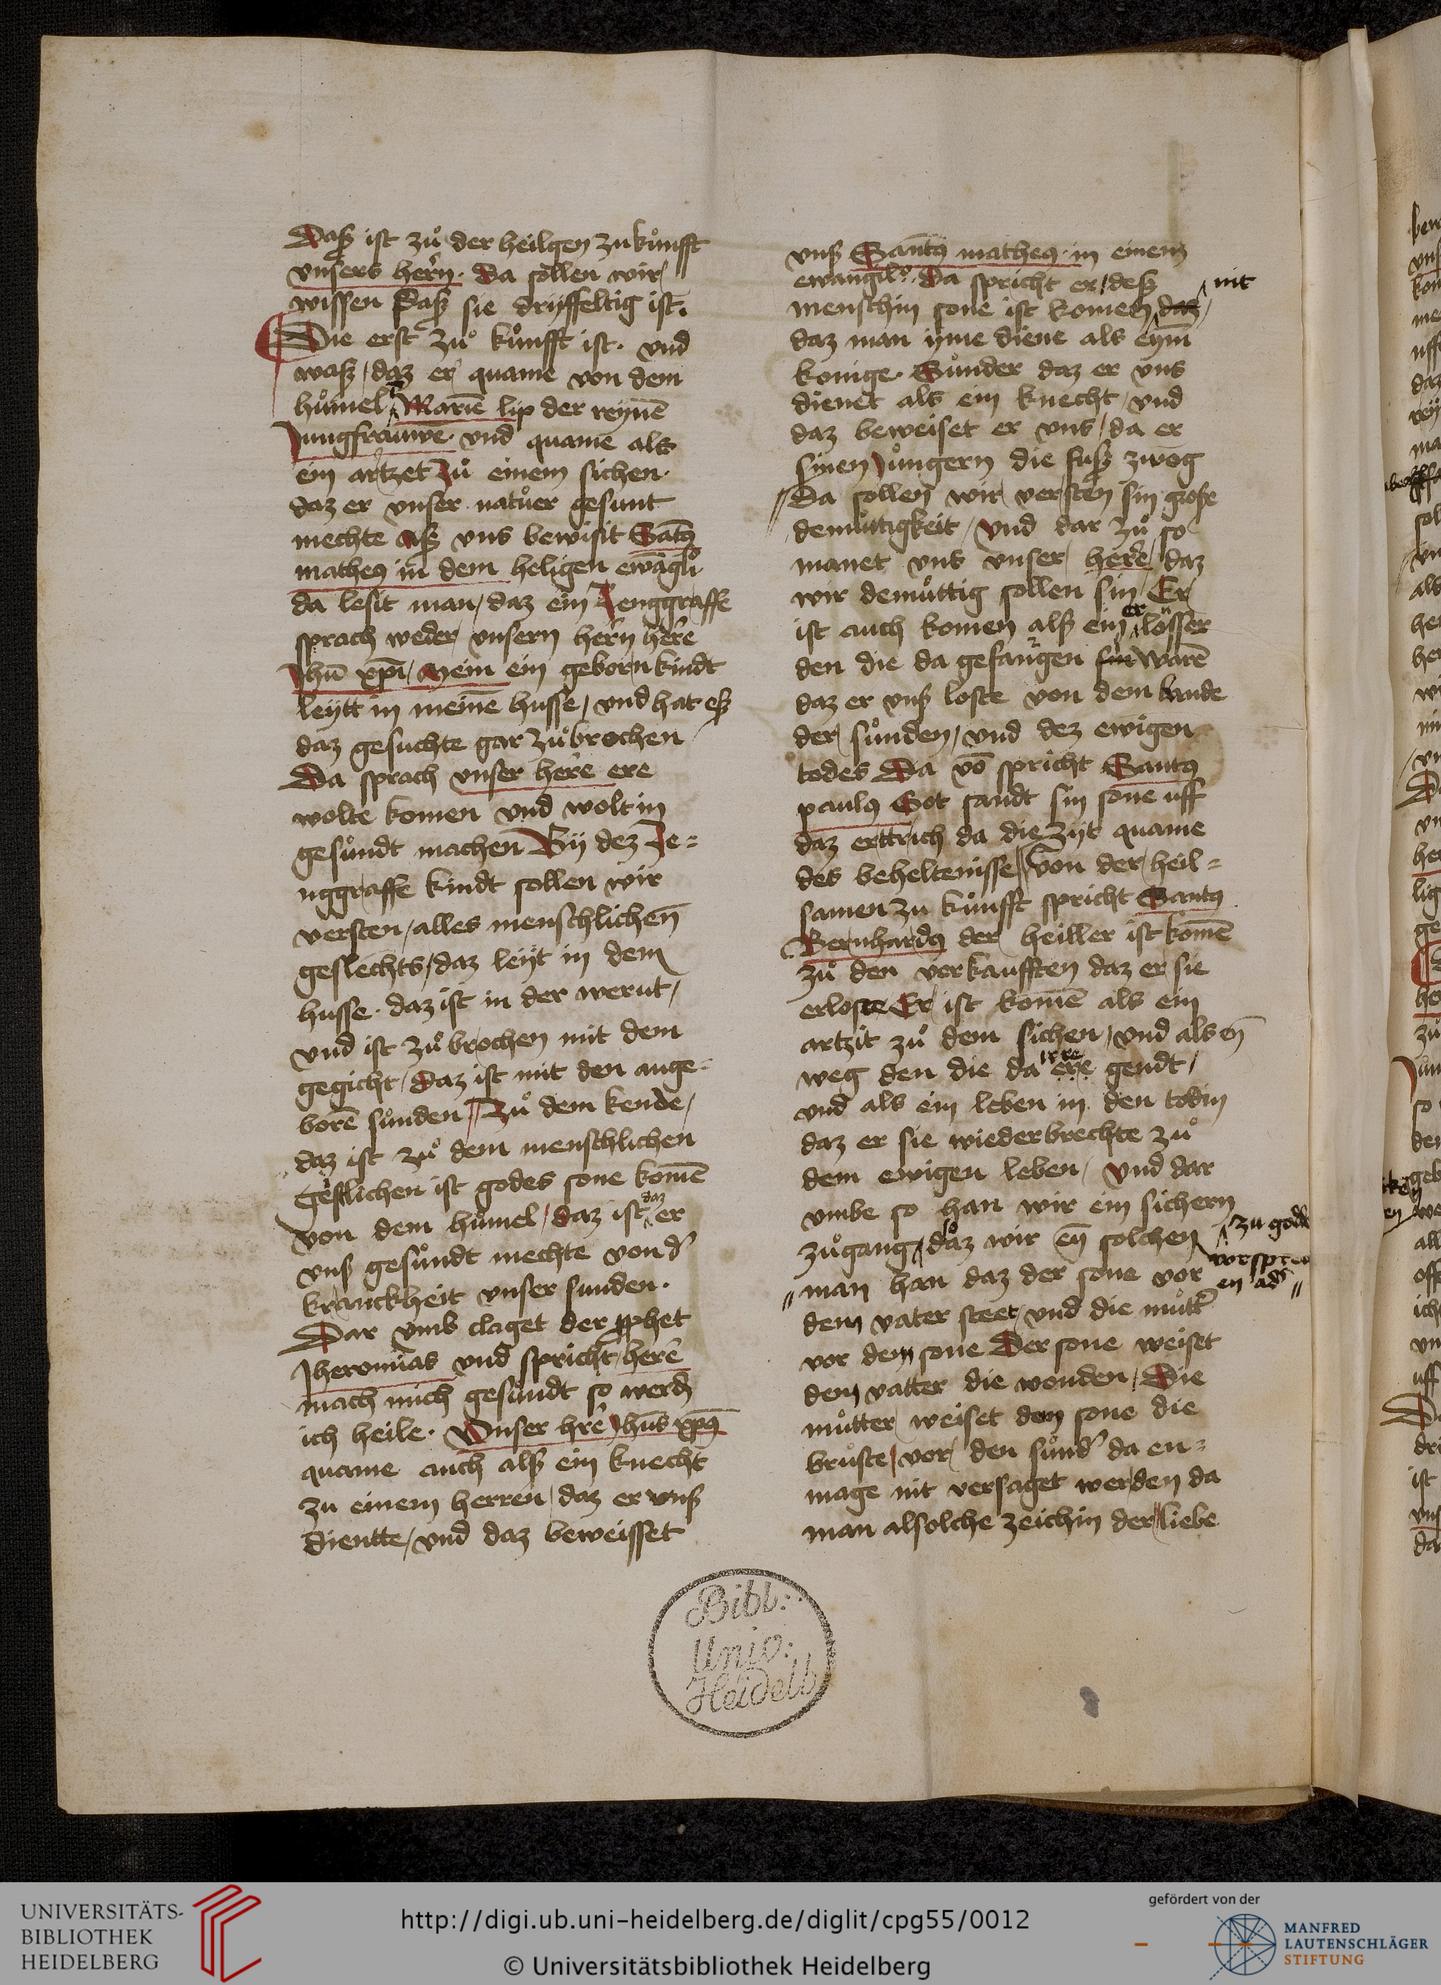 Daß ist zuͦ der heilgen zukuͦnfft
vnsers hern̄. da sollen wir
wissen Daß sie dryffeltig ist.
Die erst zuͦ kuͦnfft ist. vnd
waß / daz er quame von dem
huͦmel Marīe lip der reynē
Jungfrauwē. vnd quame als
ein artzet zuͦ einem sichen.
daz er vnser natuͦer gesunt
mechte Aß vns bewisit Sātꝰ
matheꝰ in dem heligen ewāgiͦ
da lesit man / daz ein Zenggraffe
sprach weder vnsern hern̄ here
Jhū xp̄i / Mein ein geborn kindt
leytt in meinē husse / vnd hat eß
daz gesuchte gar zuͦbrochen
Da sprach vnser here ere
wolte komen vnd wolt in
gesuͦndt machen By dez Ze=
nggraffe kindt sollen wir
versten / alles menschlichen̄
geslechts / daz leyt in dem
husse. daz ist in der wernt /
vnd ist zuͦbrochen mit dem
gegicht / Daz ist mit den ange-
borē suͦnden // Zuͦ dem kende /
daz ist zuͦ dem menschlichen
geslichen ist godes sone komē
von dem huͦmel / daz ist daz er
vnß gesuͦndt mechte von d'
kranckheit vnser sunden.
Dar vmb claget der ꝓphet
Jheromias vnd spricht / here
mach mich gesuͦndt so werdē
ich heile. Vnser hrē Jhūs xp̄ꝰ
quame auch alß ein knecht
zu einem herren / daz er vnß
dientte / vnd daz beweisset
vnß Santꝰ matheꝰ. in einem
ewangilͦ. Da spricht er / deß
nit
menschin sone ist komen / daz
daz man yme diene als eym̄
konige. Suͦnder daz er vns
dienet als ein knecht / vnd
daz beweiset er vns / da er
sinen Juͦngern die fuß zwog
Da sollen wir versten sin große
demuͦttigkeit / vnd dar zuͦ so
manet vns vnser here / daz
wir demuͦttig sollen sin / Er
ist auch komen alß ein erlösser
den die da gefangen sin warē
daz er vnß loste von dem bande
der suͦnden / vnd dez ewigen
todes Da vō spricht Santꝰ
paulꝰ Got sandt sin sone uff
daz erttrich da die zijt quame
des beheltenisse / von der heil=
samen zu kuͦnfft spricht Santꝰ
Bernhardꝰ der heiller ist komē
zuͦ den verkaufften daz er sie
erloste Er ist komē als ein
artzit zuͦ dem sichen / vnd als ē
weg den die da ere irre gendt /
vnd als ein leben in den todin
daz er sie wiederbrechte zuͦ
dem ewigen leben / vnd dar
vmbe so han wir ein sichern
zuͦgang zu godde so daz wir en̄ solchen
vorsprec
en ads
man han daz der sone vor
dem vater steet / vnd die muͦtt'
vor dem sone Der sone weiset
dem vatter die wonden / Die
muͦtter weiset dem sone die
bruͦste / vor den suͦnd' da en=
mage nit versaget werden da
man alsolche zeichin der liebe
Bibl:
Univ:
Heidelb
UNIVERSITÄTS-
BIBLIOTHEK
HEIDELBERG
http://digi.ub.uni-heidelberg.de/diglit/cpg55/0012
© Universitätsbibliothek Heidelberg
gefördert von der
MANFRED
LAUTENSCHLÄGER
STIFTUNG